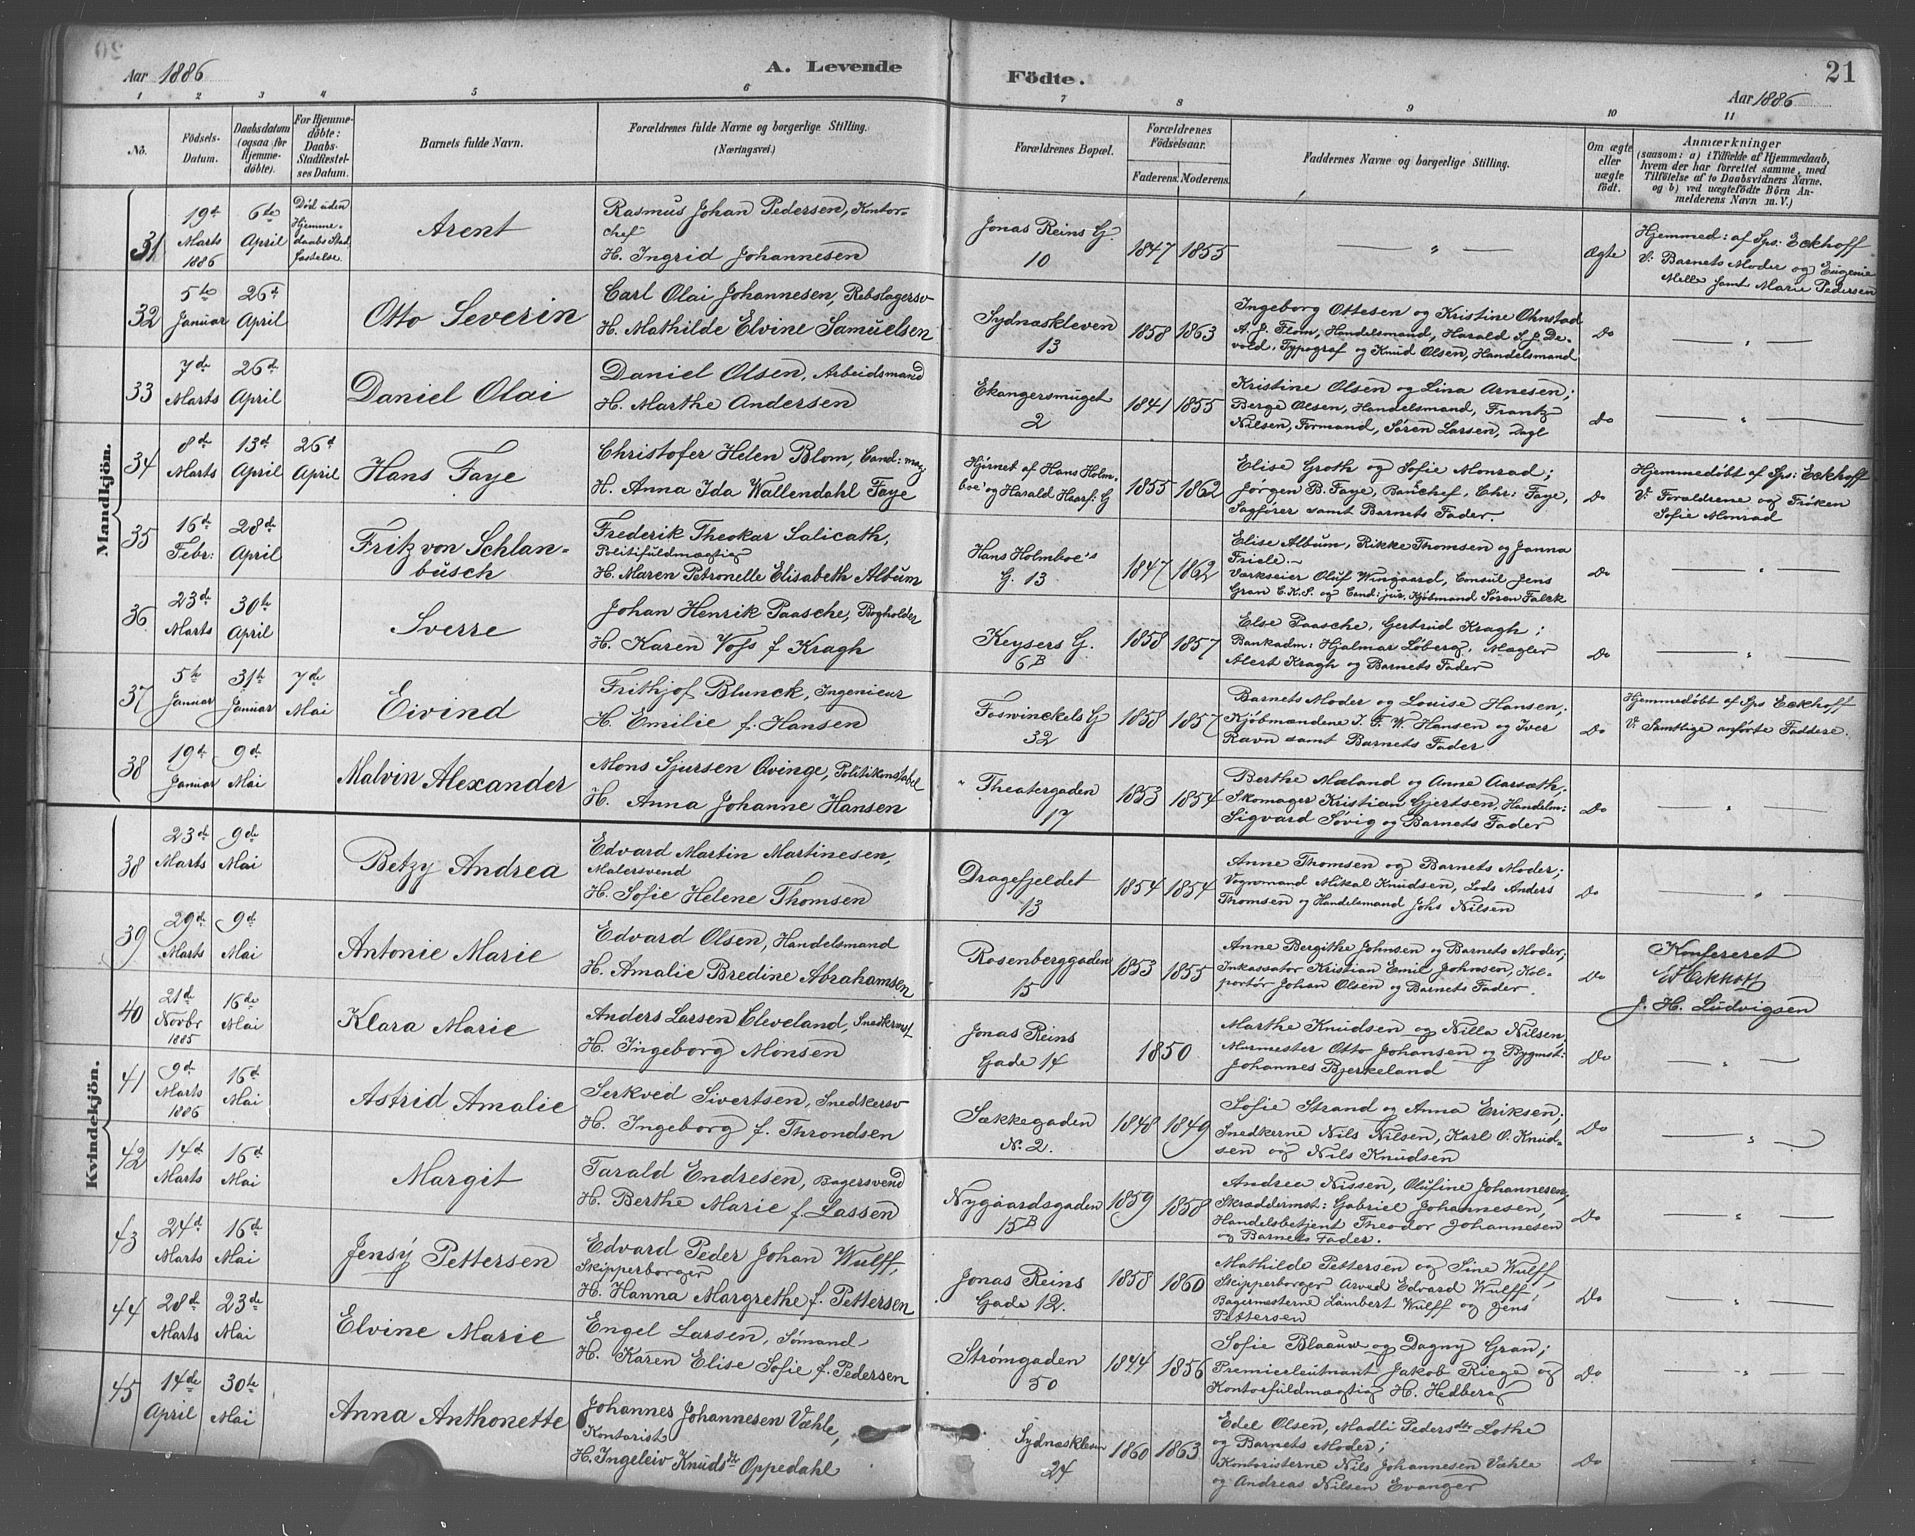 Aar 1886 A. Levende Födte. 21
Aar 1886
1 2 3 4 5 6 7 8 9 10 11
No.
Födsels-
Datum.
Daabsdatum
(ogsaa for
Hjemme-
döbte).
For Hjemme-
döbte:
Daabs-
Stadfæstel-
ses Datum.
Barnets fulde Navn.
Forældrenes fulde Navne og borgerlige Stilling.
(Næringsvei.)
Forældrenes Bopæl.
Forældrenes
Födselsaar.
Faderens. Moderens.
Faddernes Navne og borgerlige Stilling.
Om ægte
eller
uægte
født.
Anmærkninger
(saasom: a) i Tilfælde af Hjemmedaab,
hvem der har forrettet samme, med
Tilföielse af to Daabsvidners Navne,
og b) ved uægtefödte Börn An-
melderens Navn m. V.)
Mandkjön.
31
19d
Marts
1886
6te
April
Død uden
Hjemme-
daabs Stad
fæstelse
Arent
Rasmus Johan Pedersen, Kontor-
chef
H. Ingrid Johannesen
Jonas Reins G.
10
1847 1855
— " —
Ægte
Hjemmed: af Sps: Eckhoff
V: Barnets Moder og Eugenie
Melle samt Marie Pedersen
32
5te
Januar
26d
April
Otto Severin
Carl Olai Johannesen, Rebslagersv
H. Mathilde Elvine Samuelsen
Sydnæskleven
13
1858 1863
Ingeborg Ottesen og Kristine Ohnstad
A. J. Flom, Handelsmand, Harald S. J. De-
vold, Typograf og Knud Olsen, Handelsmand
Do
— " —
33
7de
Marts
26d
April
Daniel Olai
Daniel Olsen, Arbeidsmand
H. Marthe Andersen
Ekangersmuget
2
1841 1855
Kristine Olsen og Lina Arnesen;
Berge Olsen, Handelsmand, Frantz
Nilsen, Formand, Søren Larsen, Dagl
Do
— " —
34
8de
Marts
13d
April
26d
April
Hans Faye
Christofer Helen Blom, Cand: mag
H. Anna Ida Wallendahl Faye
Hjørnet af Hans Holm-
boe' og Harald Haarf: G
1855 1862
Elise Groth og Sofie Monrad;
Jørgen B. Faye, Bauchef, Chr: Faye,
Sagfører samt Barnets Fader.
Do
Hjemmedøbt af Sps: Eckhoff
V: Forældrene og Frøken
Sofie Monrad
35
16d
Febr:
28d
April
Fritz von Schlan-
busch
Frederik Theokar Salicath,
Politifuldmægtig
H. Maren Petronelle Elisabeth Album
Hans Holmboe's
G. 13
1847 1862
Elise Album, Rikke Thomsen og Janna
Friele.—
Værkseier Oluf Wingaard, Consul Jens
Gran C.K.S. og Cand: jur. Kjøbmand Søren Falck
Do
— " —
36
23de
Marts
30te
April
Sverre
Johan Henrik Paasche, Bogholder
H. Karen Voss f Kragh
Keysers G.
6B
1858 1857
Else Paasche, Gertrud Kragh;
Bankadm: Hjalmar Løberg, Mægler
Alert Kragh og Barnets Fader
Do
— " —
37
5te
Januar
31te
Januar
7de
Mai
Eivind
Frithjof Blunck, Ingenieur
H. Emilie f. Hansen
Foswinckels G
32
1858 1857
Barnets Moder og Louise Hansen;
Kjøbmændene J. F. W. Hansen og Iver
Ravn samt Barnets Fader
Do
Hjemmedøbt af Sps Eckhoff
V: Samtlige anførte Faddere.
38
19d
Januar
9d
Mai
Malvin Alexander
Mons Sjursen Qvinge, Politikonstabel
H. Anna Johanne Hansen
Theatergaden
17
1853 1854
Berthe Mæland og Anne Aarsæth;
Skomager Kristian Gjertsen, Handelm:
Sigvard Søvig og Barnets Fader
Do
— " —
Kvindekjön.
38
23de
Marts
9de
Mai
Betzy Andrea
Edvard Martin Martinesen,
Malersvend
H. Sofie Helene Thomsen
Dragefjeldet
13
1854 1854
Anne Thomsen og Barnets Moder;
Vognmand Mikal Knudsen, Lods Anders
Thomsen og Handelsmand Johs Nilsen
Do
— " —
39
29de
Marts
9d
Mai
Antonie Marie
Edvard Olsen, Handelsmand
H. Amalie Bredine Abrahamsen
Rosenberggaden
15
1853 1855
Anne Bergithe Johnsen og Barnets Moder,
Inkassator Kristian Emil Johnsen, Kol-
portør Johan Olsen og Barnets Fader.
Do
Konfereret
W Eckhoff
J. H. Ludvigsen
40
21de
Novbr
1885
16de
Mai
Klara Marie
Anders Larsen Cleveland, Snedkermst.
H. Ingeborg Monsen
Jonas Reins
Gade 14
1850
Marthe Knudsen og Nilla Nilsen,
Murmester Otto Johansen og Bygmst:
Johannes Bjerkeland
Do
— " —
41
9de
Marts
1886
16d
Mai
Astrid Amalie
Serkved Sivertsen, Snedkersv
H. Ingeborg f. Throndsen
Sækkegaden
N: 2.
1848 1849
Sofie Strand og Anna Eriksen;
Snedkerne Nils Nilsen, Karl O. Knud-
sen og Nils Knudsen
Do
— " —
42
14d
Marts
16d
Mai
Margit
Tarald Endresen, Bagersvend
H. Berthe Marie f. Lassen
Nygaardsgaden
15B
1859 1858
Andrea Nissen, Olufine Johannesen,
Skræddermst: Gabriel Johannesen,
Handelsbetjent Theodor Johannesen
og Barnets Fader.
Do
— " —
43
24d
Marts
16d
Mai
Jensy Pettersen
Edvard Peder Johan Wulff,
Skipperborger
H. Hanna Margrethe f. Pettersen
Jonas Reins
Gade 12.
1858 1860
Mathilde Pettersen og Sine Wulff,
Skipperborger Arved Edvard Wulff,
Bagermesterne Lambert Wulff og Jens
Pettersen
Do
— " —
44
28de
Marts
23de
Mai
Elvine Marie
Engel Larsen, Sømand
H. Karen Elise Sofie f. Pedersen
Strømgaden
50
1844 1856
Sofie Blaauw og Dagny Gran;
Premierleutnant Jakob Riege og
Kontorfuldmægtig H. Hedberg
Do
— " —
45
14de
April
30te
Mai
Anna Anthonette
Johannes Johannesen Væhle,
Kontorist
H. Ingeleiv Knudsdtr Oppedahl
Sydnæskleven
24
1860 1863
Edel Olsen, Madli Pedersdtr Lothe
og Barnets Moder;
Kontoristerne Nils Johannesen Væhle
og Andreas Nilsen Evanger
Do
— " —